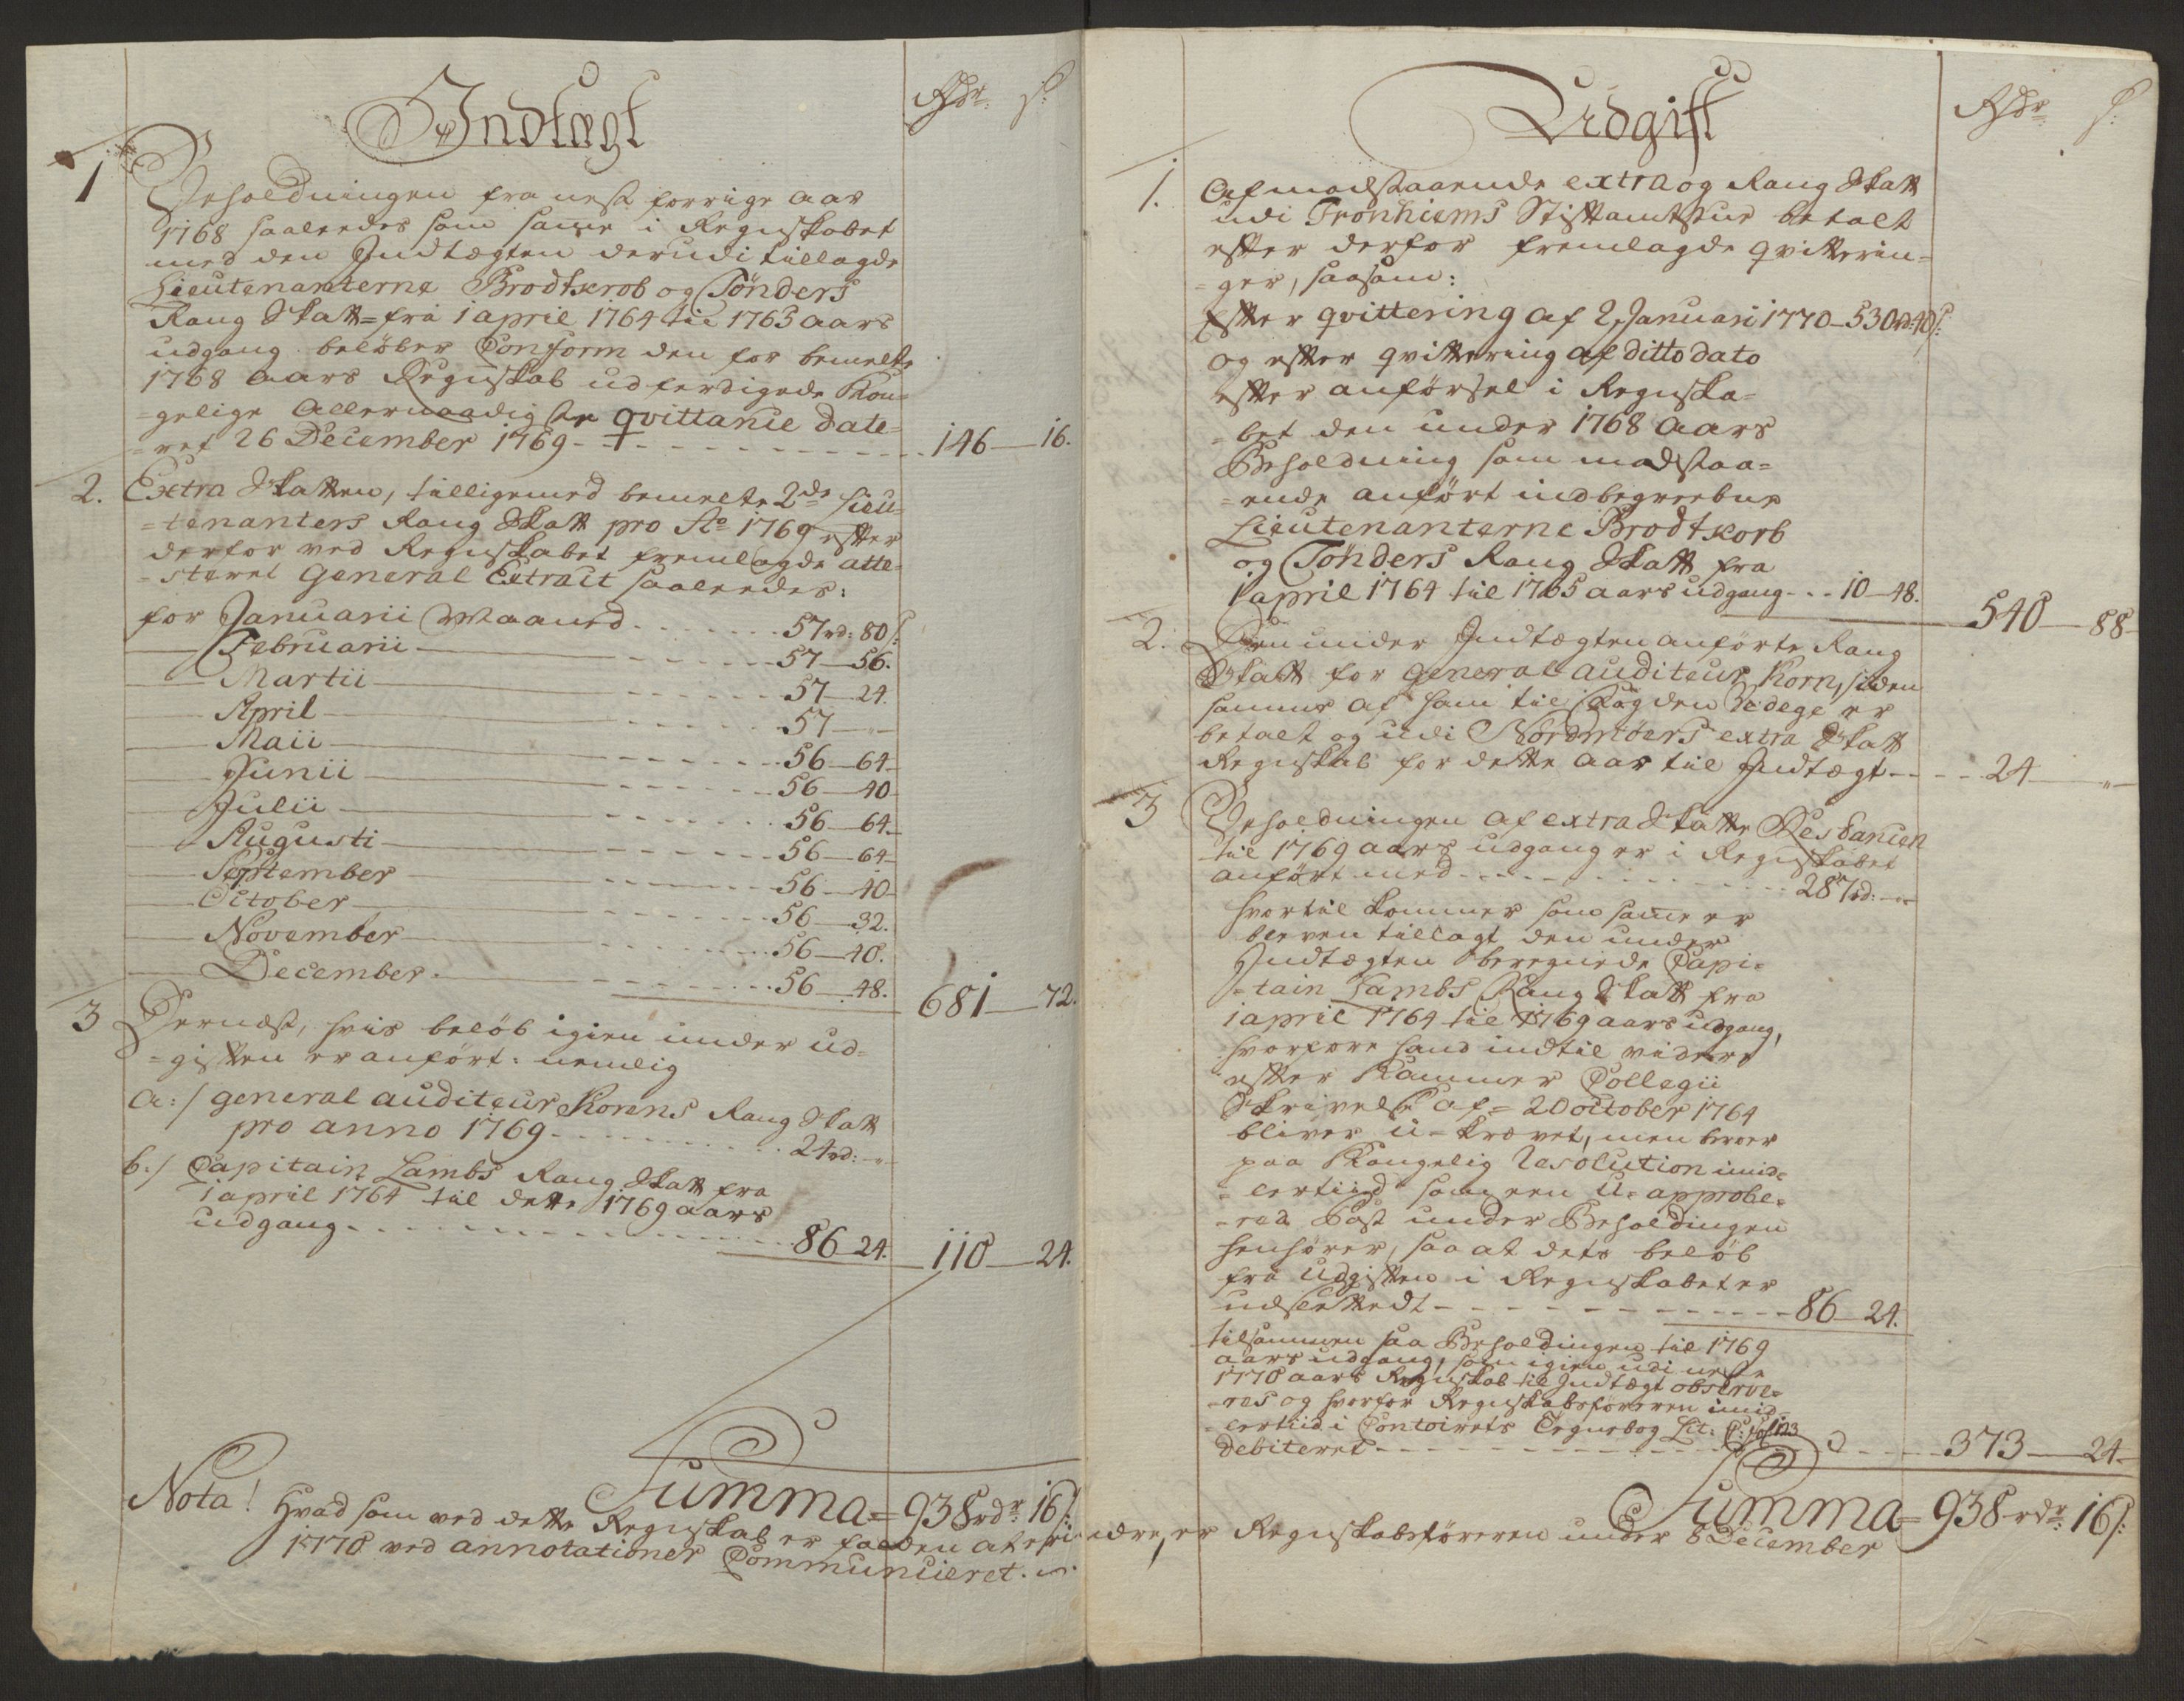 Indtægt
Rdr: s:
1
Beholdningen fra nest forrige aar
1768 saaledes som samme i Regnskabet
med den Indtægten derudi tillagde
Lieutenanterne Brodtkrob og Tönders
Rang Skatt fra 1 april 1764 til 1765 aars
udgang beløber Conform den for bemelte
1768 aars Regnskab udferdigede Kon-
=gelige Allernaadigste qvittance date=
=ret 26 December 1769 - - 146 - 16.
2. Extra Skatten, tilligemed bemelte 2de Lieu-
=tenanters Rang Skatt pro Ao 1769 efter
derfor ved Regnskabet fremlagde atte-
=steret General Extract saaledes:
for Januarii Maaned - - - 57rd: 80s:
Februarii - - - 57 - 56.
Martii - - - 57 - 24.
April - - - 57 - "
Maii - - - 56 - 64
Junii - - - 56 - 40
Julii - - - 56 - 64
Augusti - - - 56 - 64
September - - - 56 - 40
October - - - 56 - 32.
November - - - 56 - 40.
December - - - 56 - 48. 681 - 72.
3 Dernæst, hvis beløb igien under ud-
=giften er anført: nemlig
a:/ general auditeur Korens Rang Skatt
pro anno 1769 - - - 24rd: "
b:/ Capitain Lambs Rang Skatt fra
1 april 1764 til dette 1769 aars
udgang - - - 86 24. 110 - 24.
Summa = 938rdr: 16s:
Udgift
Rdr: s:
1. Af modstaaende extra og Rang Skatt
udi Tronhiems Stiftamtstue betalt
efter derfor fremlagde qvitterin-
=ger, saasom:
Efter qvittering af 2 Januari 1770 - 530rd: 40s:
og efter qvittering af ditto dato
efter anførsel i Regnska-
=bet den under 1768 aars
Beholdning som modstaa-
=ende anført indbegreebne
Lieutenanterne Brodtkorb
og Tönders Rang Skatt fra
1 april 1764 til 1765 aars udgang - - - 10 - 48.
540 - 88
2. Den under Indtægten anførte Rang
Skatt for general auditeur Korn, siden
samme af ham til Fogden
betalt og udi Nordmöers extra Skatt
Regnskab for dette aar til Indtægt - - - 24 - "
3 Beholdningen af extra Skatte Restancen
til 1769 aars udgang er i Regnskabet
anført med - - - 287rd: "
hvortil kommer som samme er
bleven tillagt den under
Indtægten beregnede Capi=
=tain Lambs Rang Skatt fra
1 april 1764 til 1769 aars udgang,
hvorfore hand indtil videre
efter Kammer Collegii
Skrivelse af 20 october 1764
bliver u-krævet, men beroer
paa Kongelig Resolution imid-
=lertiid som een u-approbe-
=red Post under Beholdingen
henhører, saa at dets beløb
fra Udgiften i Regnskabet er
udslettedt - - - 86 24.
tilsammen saa Beholdingen til 1769
aars udgang, som igien udi neste
1770 aars Regnskab til Indtægt observe-
=res og hvorfor Regnskabsføreren imid-
=lertiid i Contoirets Tegnebog Lit: C: fol 123
debiteret - - - 373 - 24
Summa = 938rdr: 16s:
Nota! Hvad som ved dette Regnskab er falden at erindre, er Regnskabsføreren under 8 December
1770 ved annotationer Communiceret.